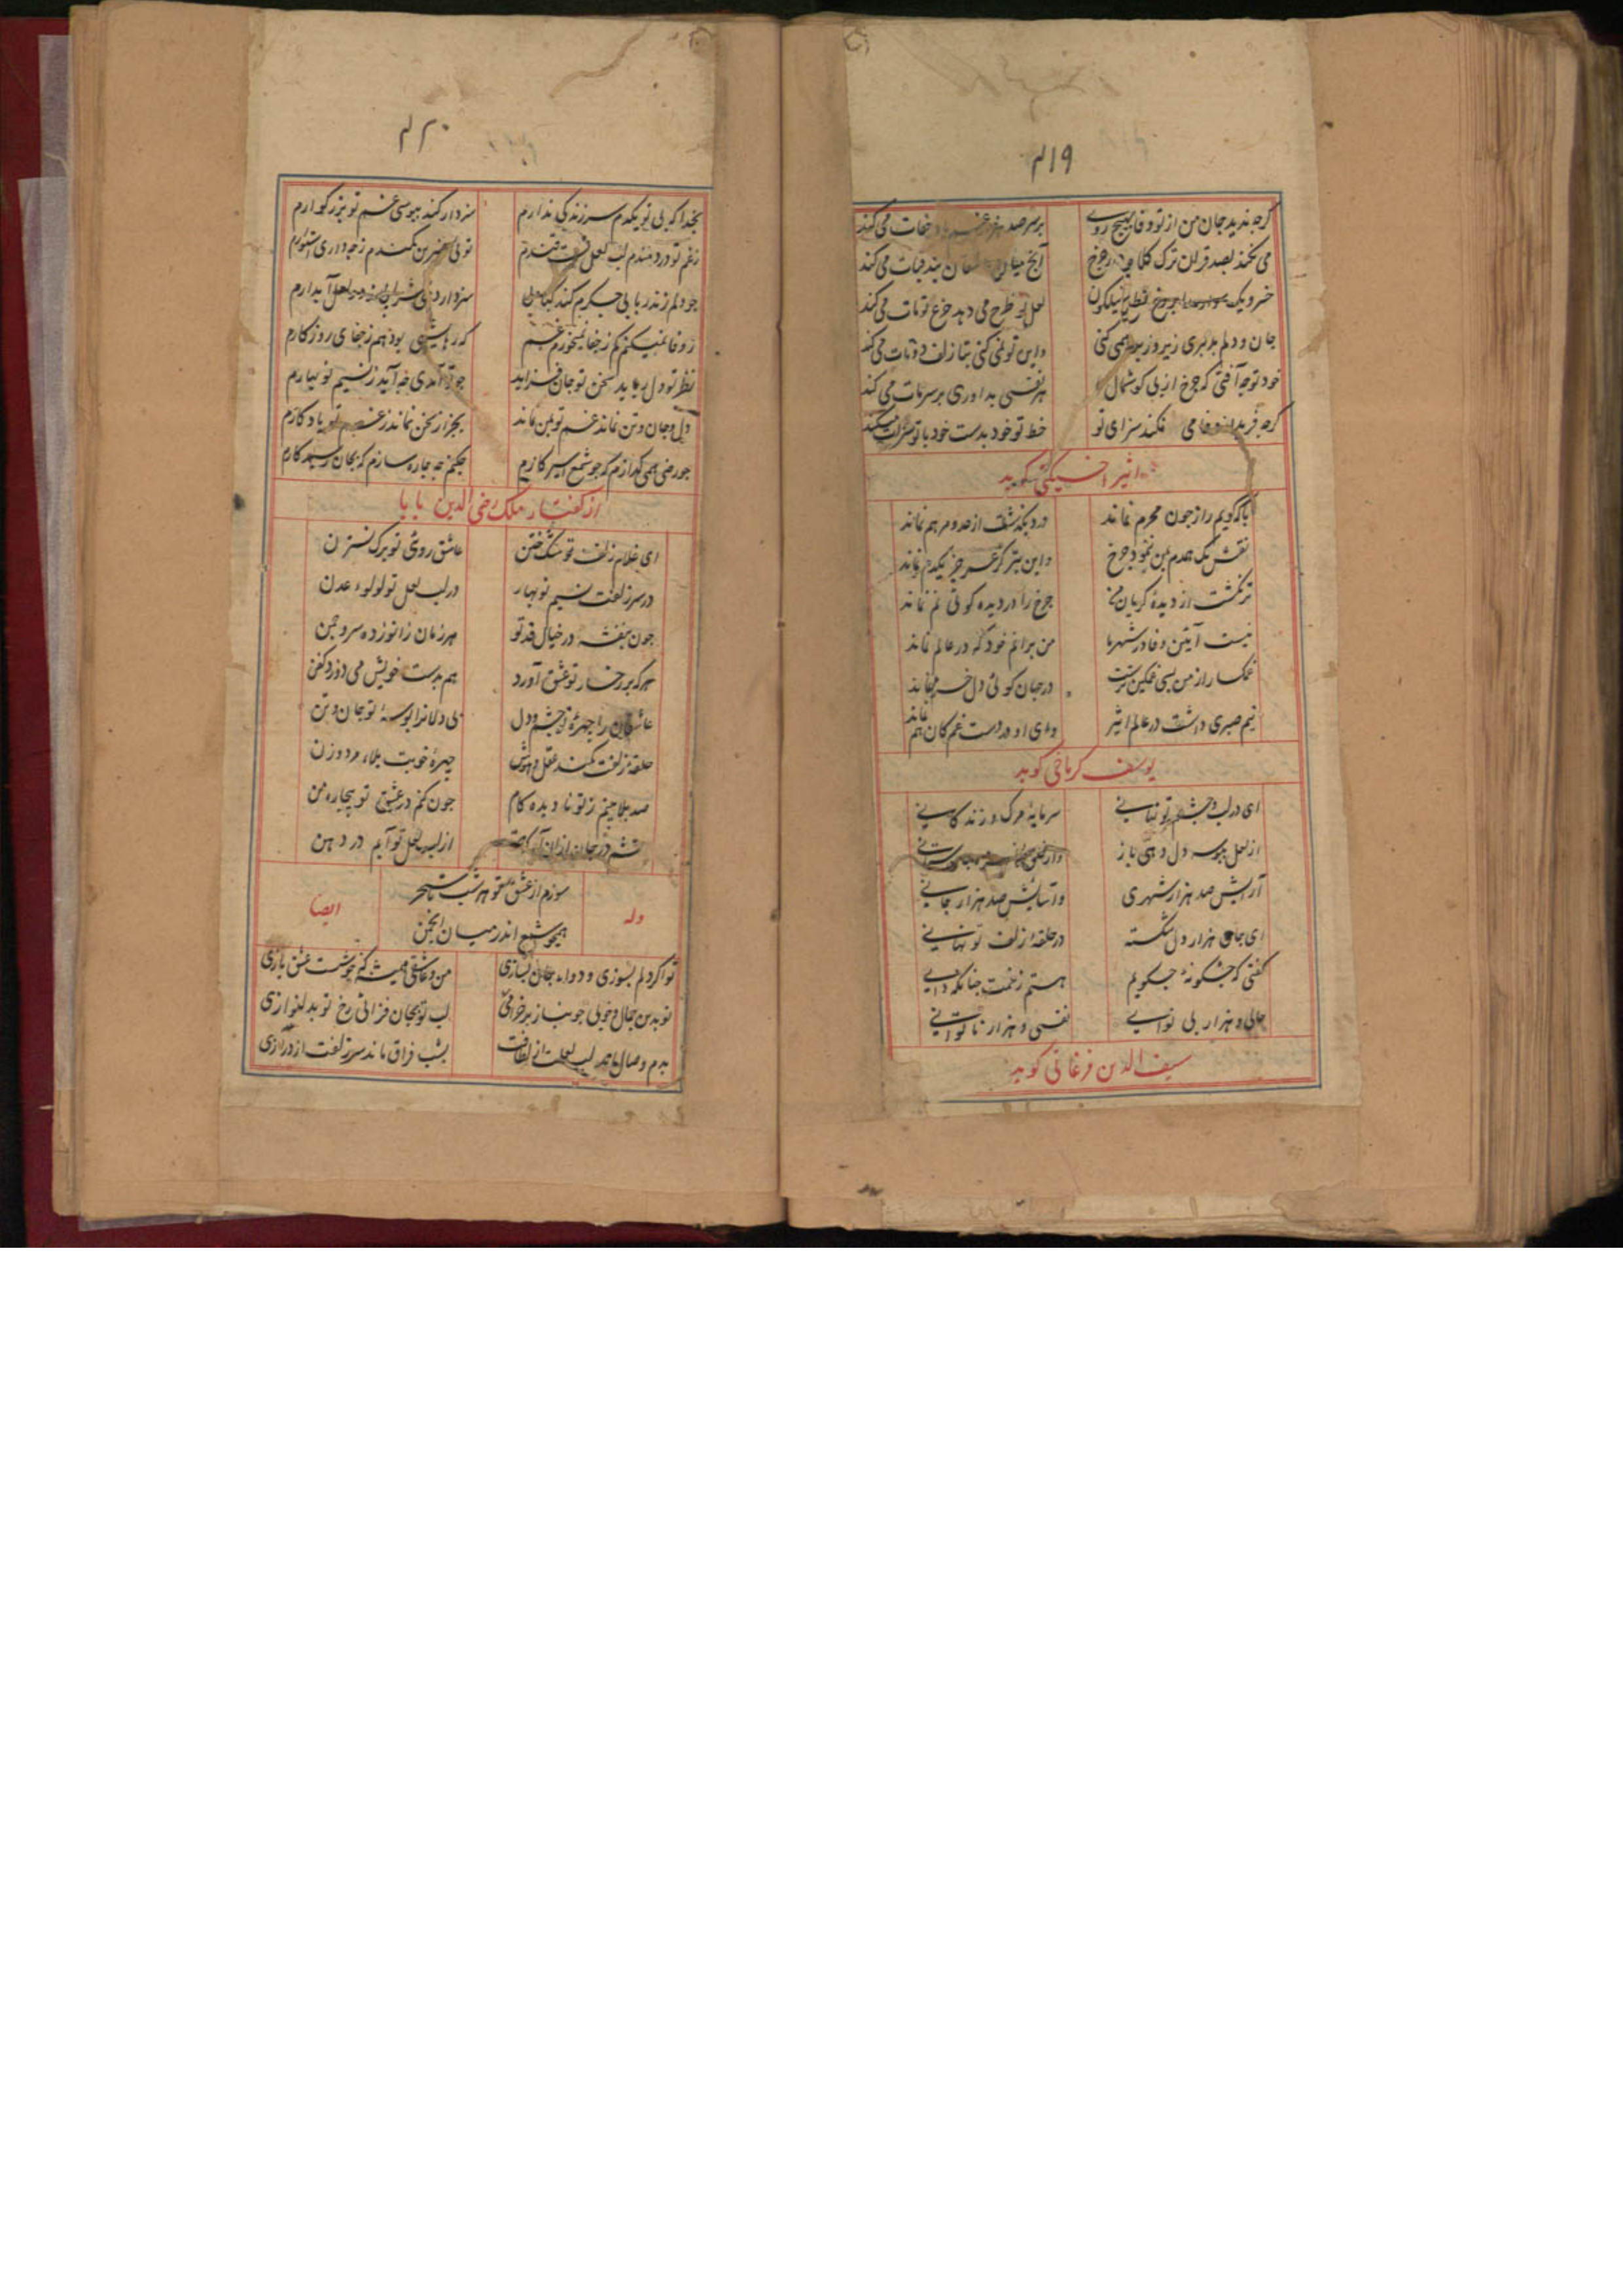 ۴۱۹
گرچه ندید جان من از تو وفا بهیچ روی
بر سر صد هزار غم جفات می کند
می نکند بصد قران ترک کلاه چرخ
آنچ میان عاشقان بند قبات می کند
لعل تو طرح می دهد جزع تو مات می کند
جان و دلم بدلبری زیر و زبر همی کنی
واین تو نمی کنی بتا زلف دوتات می کند
خود تو چه آفتی که چرخ از پی گوشمال
هر نفسی بداوری بر سر مات می کند
گرچه فرید می نکند سزای تو
خط تو خود بدست خود با تو سزات میکند
اثیر اخسیکتی گوید
با که گویم راز چون محرم نماند
درد بگذشت از حد و مرهم نماند
نقش یک همدم بمن ننمود چرخ
واین بتر کز عمر جز یکدم نماند
تر نگشت از دیده گریان من
چرخ را در دیده گوئی نم نماند
نیست آیین وفا در شهر ما
من برانم خود که در عالم نماند
غمگسار از من بسی غمگین ترست
در جهان گوئی دل خرم نماند
نیم صبری داشت در عالم اثیر
وای او در دست غم کان هم نماند
یوسف کرباجی گوید
ای در لب و چشم تو نهانی
سرمایهٔ مرگ و زندگانی
از لعل ببوسه دل دهی باز
آرایش صد هزار شهری
وآسایش صد هزار جانی
ای جای هزار دل شکسته
در حلقهٔ زلف تو نهانی
گفتی که چگونهٔ چگویم
هستم ز غمت چنانکه دانی
حالی و هزار بی نوایی
نفسی و هزار ناتوانی
سیف الدین فرغانی گوید
۴۲۰
بخدا که بی تو یکدم سر زندگی ندارم
سزد ار کند ببوسی غم تو بزرگوارم
ز غم تو دردمندم لب لعل تست قندم
چو دلم ز تن ربایی جگرم کنی کبابی
سزد ار دهی شرابی ز لب لعل آبدارم
ز وفا نمیکنم کم ز جفا نمیخورم غم
که رهایشی بود هم ز جفای روزگارم
نظر تو دل رباید سخن تو جان فزاید
چو تو آمدی چه آید ز نسیم نوبهارم
دل و جان و تن نماند غم تو بمن نماند
بجز از سخن نماند ز غم تو یادگارم
چو رضی همی گدازم که چو شمع اسیر گازم
چکنم چه چاره سازم که بجان رسید کارم
از گفتار ملک رضی الدین بابا
ای غلام زلف تو مشک ختن
عاشق روی تو برگ نسترن
در سر زلفت نسیم نوبهار
در لب لعل تو لولوء عدن
چون بنفشه در خیال قد تو
هر زمان زانو زده سرو چمن
هرکه بر رخسار تو عشق آورد
هم بدست خویش می دوزد کفن
عاشقان را چهرهٔ تو چشم و دل
بی دلانرا بوسهٔ تو جان و تن
حلقهٔ زلفت کمند عقل و هوش
چهرهٔ خوبت بلاء مرد و زن
صد بلا بینم ز تو نادیده کام
چون کنم در عشق تو بیچاره من
از لب لعل تو آیم در دهن
وله
سوزم از عشق تو هر شب تا سحر
ایضا
همچو شمع اندر میان انجمن
تو اگر دلم بسوزی و دواء جان بسازی
من و عاشقی همیشه که خوشست عشق بازی
تو بدین جمال و خوبی چو بناز برخرامی
لب تو بجان فزائی رخ تو بدلنوازی
بدم وصال ماند لب لعلت از لطافت
بشب فراق ماند سر زلفت از درازی